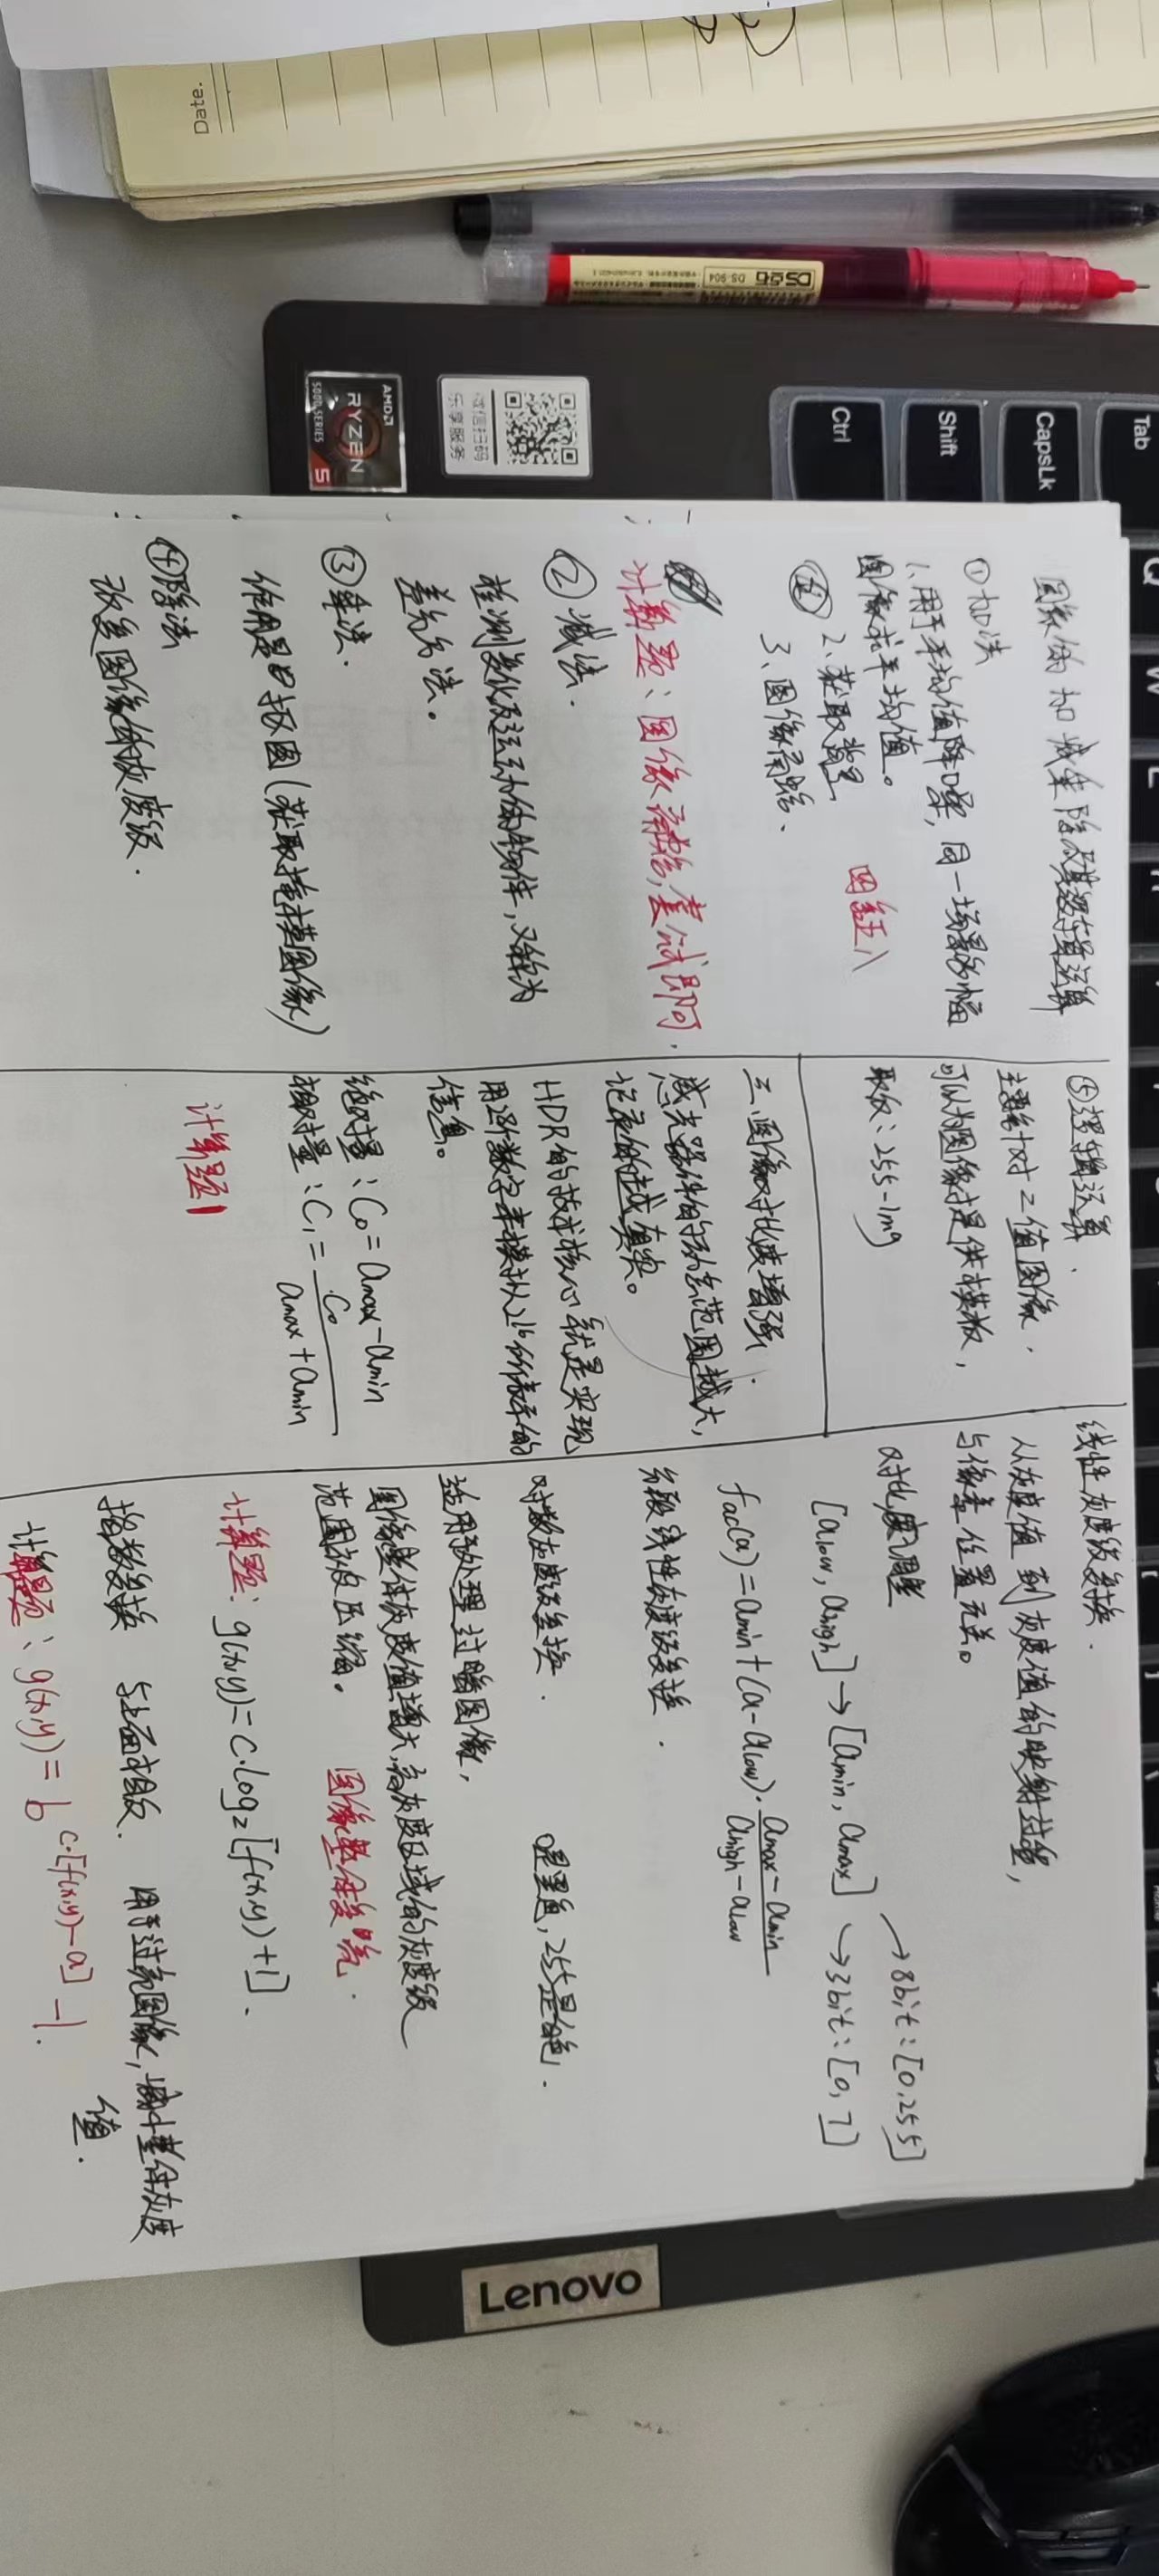 图像的加减乘除及其逻辑运算
①加法
1、用于平均值降噪,同一场景多幅
图像求平均值。
四舍五入
2、获取背景
3、图像融合、
计算题:图像融合,套公式即可.
②减法.
检测变化及运动的物体,又称为
差分方法。
③乘法.
作用是抠图(获取掩模图像)
④除法
改变图像的灰度级.
⑤逻辑运算.
主要针对二值图像.
可以为图像提供模板,
取反:255-img
三、图像对比度增强.
感光器件的动态范围越大,
记录的越真实。
HDR的技术核心就是实现
用2⁸个数字来模拟2¹⁶所表示的
信息。
绝对量:C₀=amax-amin
相对量:C₁=C₀/(amax+amin)
计算题1
线性灰度级变换.
从灰度值到灰度值的映射过程,
与像素位置无关。
对比度调整
[alow, ahigh]→[amin, amax]
→8bit:[0,255]
→3bit:[0,7]
fac(a)=amin+(a-alow)·(amax-amin)/(ahigh-alow)
分段线性灰度级变换.
对数灰度级变换.
0是黑色,255是白色.
适用于处理过暗图像,
图像整体灰度值增大,高灰度区域的灰度级
范围被压缩。
图像整体变亮.
计算题:g(x,y)=c·log₂[f(x,y)+1].
指数变换 与上面相反. 用于过亮图像,减小整体灰度
值.
计算题:g(x,y)=b^(c·[f(x,y)-a])-1.
Tab
CapsLk
Shift
Ctrl
微信扫码
乐享服务
AMD
RYZEN
5000 SERIES
5
Lenovo
Date.